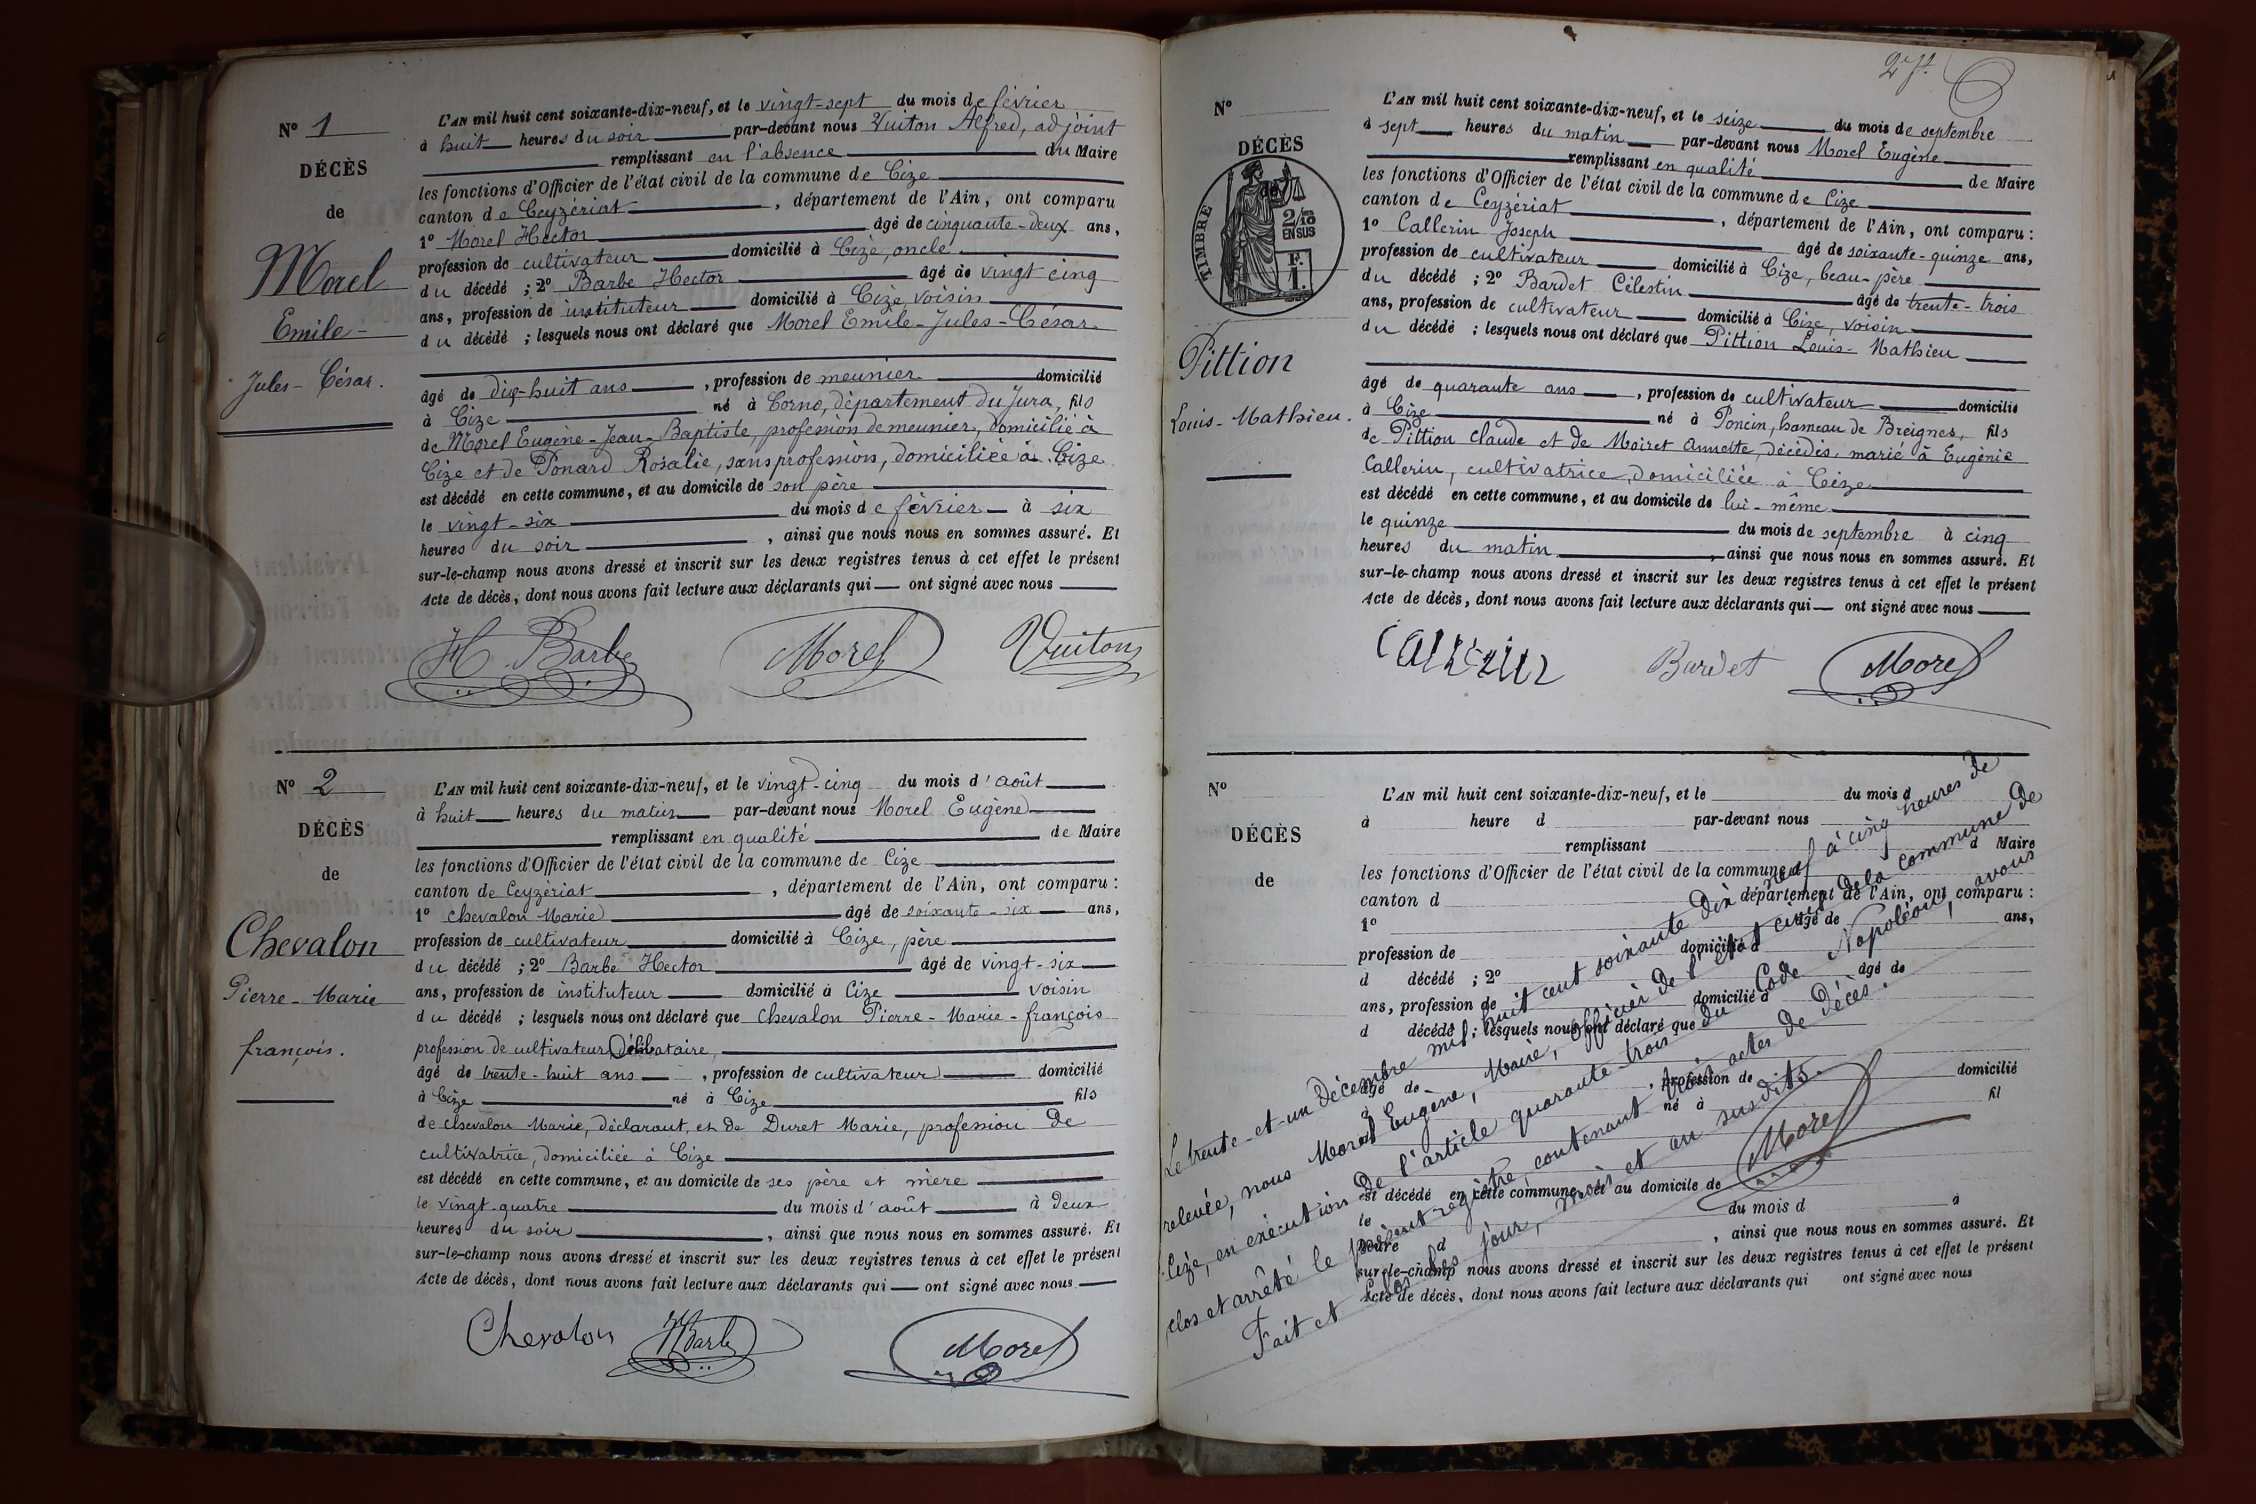 L'AN mil huit cent soixante-dix-neuf, et le vingt-sept du mois de février
N° 1
à huit heures du soir par-devant nous Vuiton Alfred, adjoint
remplissant en l'absence du Maire
DÉCÈS
les fonctions d'Officier de l'état civil de la commune de Cize
de
canton de Ceyzériat, département de l'Ain, ont comparu
1° Morel Hector âgé de cinquante-deux ans,
Morel
profession de cultivateur domicilié à Cize, oncle
du décédé ; 2° Barbe Hector âgé de vingt cinq
ans, profession de instituteur domicilié à Cize, voisin
Emile-
du décédé ; lesquels nous ont déclaré que Morel Emile-Jules-César
Jules-César.
âgé de dix-huit ans, profession de meunier domicilié
à Cize né à Corno, département du Jura, fils
de Morel Eugène-Jean-Baptiste, profession de meunier, domicilié à
Cize et de Ponard Rosalie, sans profession, domiciliée à Cize
est décédé en cette commune, et au domicile de son père
le vingt-six du mois de février à six
heures du soir, ainsi que nous nous en sommes assuré. Et
sur-le-champ nous avons dressé et inscrit sur les deux registres tenus à cet effet le présent
Acte de décès, dont nous avons fait lecture aux déclarants qui ont signé avec nous
H. Barbe Morel Vuiton
N° 2
L'AN mil huit cent soixante-dix-neuf, et le vingt-cinq du mois d'août
à huit heures du matin par-devant nous Morel Eugène
DÉCÈS
remplissant en qualité de Maire
les fonctions d'Officier de l'état civil de la commune de Cize
de
canton de Ceyzériat, département de l'Ain, ont comparu :
1° Chevalon Marie âgé de soixante-six ans,
Chevalon
profession de cultivateur domicilié à Cize, père
du décédé ; 2° Barbe Hector âgé de vingt-six
Pierre-Marie
ans, profession de instituteur domicilié à Cize voisin
du décédé ; lesquels nous ont déclaré que Chevalon Pierre-Marie-françois
françois.
profession de cultivateur, Célibataire,
âgé de trente-huit ans, profession de cultivateur domicilié
à Cize né à Cize fils
de Chevalon Marie, déclarant, et de Duret Marie, profession de
cultivatrice, domiciliée à Cize
est décédé en cette commune, et au domicile de ses père et mère
le vingt-quatre du mois d'août à deux
heures du soir, ainsi que nous nous en sommes assuré. Et
sur-le-champ nous avons dressé et inscrit sur les deux registres tenus à cet effet le présent
Acte de décès, dont nous avons fait lecture aux déclarants qui ont signé avec nous
Chevalon HBarbe Morel
27
N°
L'AN mil huit cent soixante-dix-neuf, et le seize du mois de septembre
à sept heures du matin par-devant nous Morel Eugène
DÉCÈS
remplissant en qualité de Maire
les fonctions d'Officier de l'état civil de la commune de Cize
TIMBRE
2/10 EN SUS
F. 1.
canton de Ceyzériat, département de l'Ain, ont comparu :
1° Callerin Joseph âgé de soixante-quinze ans,
profession de cultivateur domicilié à Cize, beau-père
du décédé ; 2° Bardet Célestin âgé de trente-trois
ans, profession de cultivateur domicilié à Cize, voisin
du décédé ; lesquels nous ont déclaré que Pittion Louis-Mathieu
Pittion
Louis-Mathieu.
âgé de quarante ans, profession de cultivateur domicilié
à Cize né à Poncin, hameau de Breignes, fils
de Pittion Claude et de Moiret Annette, décédés, marié à Eugénie
Callerin, cultivatrice, domiciliée à Cize
est décédé en cette commune, et au domicile de lui-même
le quinze du mois de septembre à cinq
heures du matin, ainsi que nous nous en sommes assuré. Et
sur-le-champ nous avons dressé et inscrit sur les deux registres tenus à cet effet le présent
Acte de décès, dont nous avons fait lecture aux déclarants qui ont signé avec nous
Callerin Bardet Morel
N°
L'AN mil huit cent soixante-dix-neuf, et le du mois d
à heure d par-devant nous
DÉCÈS
remplissant d Maire
les fonctions d'Officier de l'état civil de la commune d
de
canton d département de l'Ain, ont comparu :
1° âgé de ans,
profession de domicilié à
d décédé ; 2° âgé de
ans, profession de domicilié à
d décédé ; lesquels nous ont déclaré que
âgé de, profession de domicilié
à né à fil
est décédé en cette commune, et au domicile de
le du mois d à
heure d, ainsi que nous nous en sommes assuré. Et
sur-le-champ nous avons dressé et inscrit sur les deux registres tenus à cet effet le présent
Acte de décès, dont nous avons fait lecture aux déclarants qui ont signé avec nous
Le trente-et-un décembre mil huit cent soixante dix neuf à cinq heures de
relevée, nous Morel Eugène, Maire, officier de l'état civil de la commune de
Cize, en exécution de l'article quarante-trois du Code Napoléon, avons
clos et arrêté le présent registre, contenant trois actes de Décès.
Fait et clos les jour, mois et an susdits.
Morel